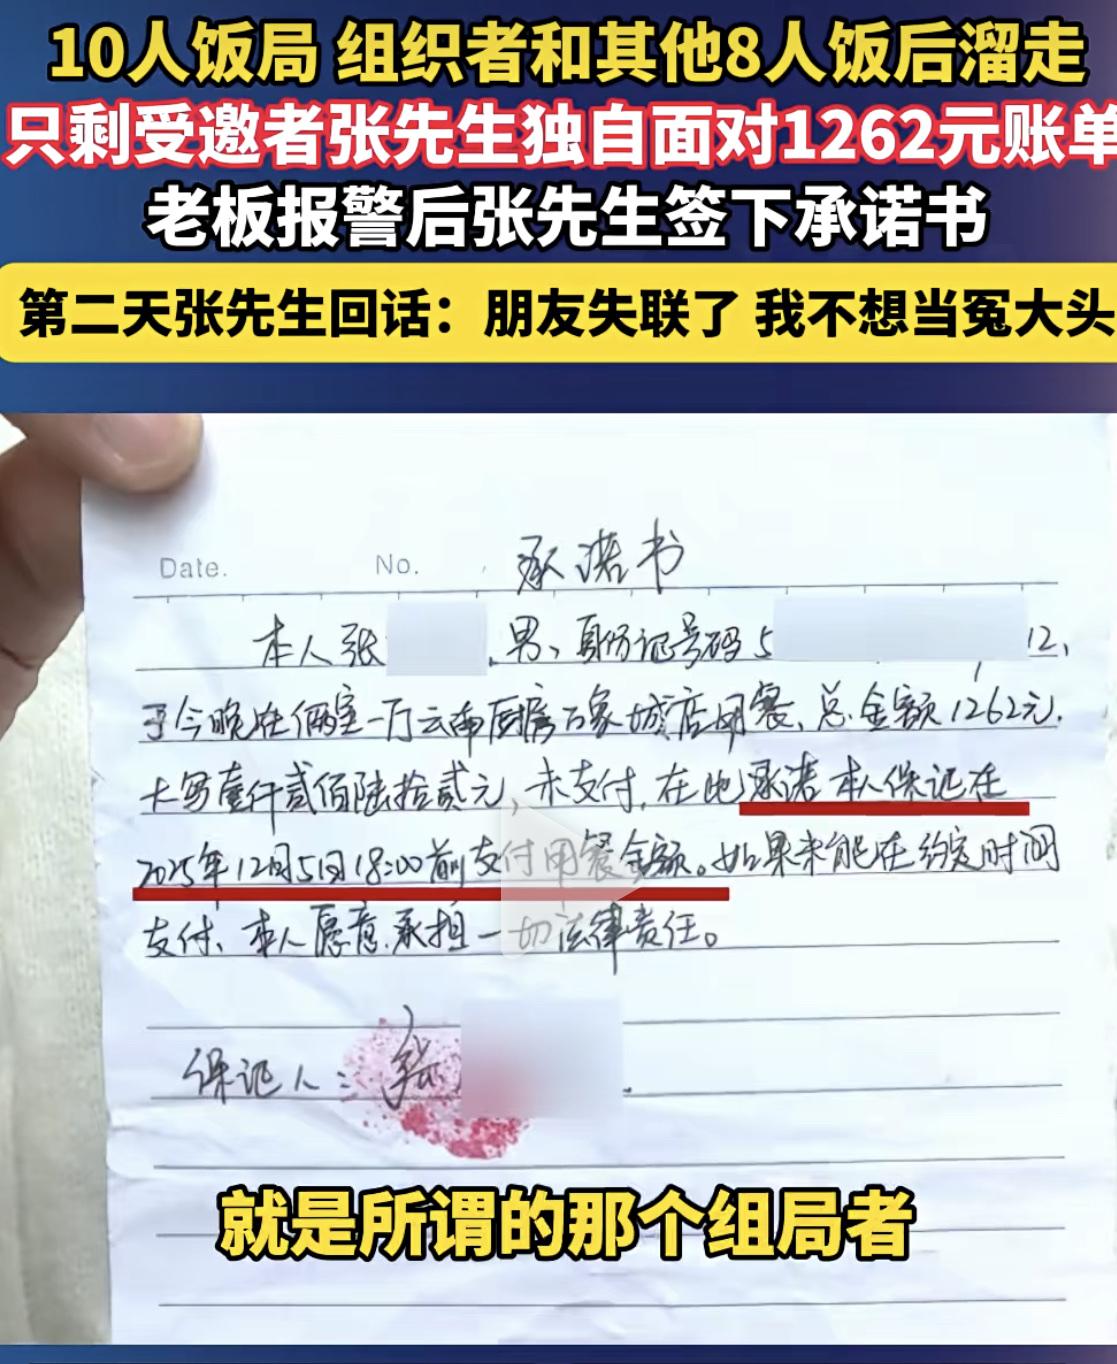 10人饭局 组织者和其他8人饭后溜走
只剩受邀者张先生独自面对1262元账单
老板报警后张先生签下承诺书
第二天张先生回话：朋友失联了 我不想当冤大头
Date. No. 承诺书
本人张 男、身份证号码5 12、
于今晚在俩室一厅云南厨房万象城店用餐、总金额1262元.
大写壹仟贰佰陆拾贰元，未支付，在此承诺本人保证在
2025年12月5日18:00前支付用餐金额。如果未能在约定时间
支付、本人愿意承担一切法律责任。
保证人：张
就是所谓的那个组局者